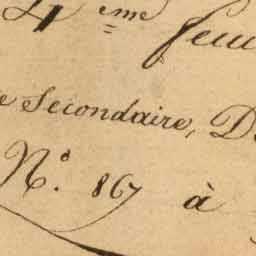 4eme feui
e Secondaire, D
N° 867 à